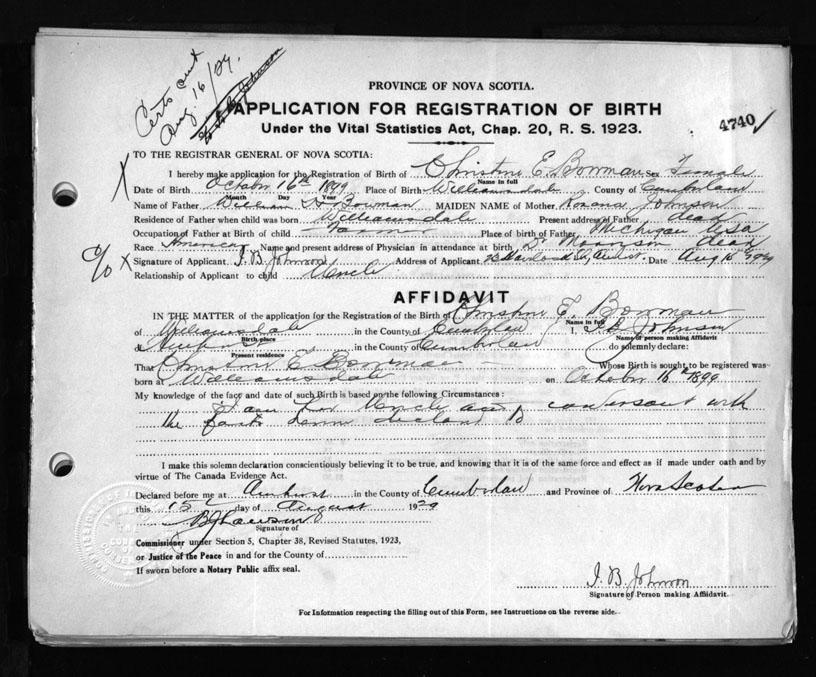 Certs sent
Aug. 16/29.
PROVINCE OF NOVA SCOTIA.
APPLICATION FOR REGISTRATION OF BIRTH
Under the Vital Statistics Act, Chap. 20, R. S. 1923.
4740
TO THE REGISTRAR GENERAL OF NOVA SCOTIA:
X I hereby make application for the Registration of Birth of Christine E. Bowman Sex Female
Name in full
Date of Birth October 16th 1899 Place of Birth Williamsdale County of Cumberland
Month Day Year
Name of Father William H Bowman MAIDEN NAME of Mother Roxana Johnson
Residence of Father when child was born Williamsdale Present address of Father dead
Occupation of Father at Birth of child Farmer Place of birth of Father Michigan USA
Race American Name and present address of Physician in attendance at birth Dr Morrison dead
% X Signature of Applicant J. B Johnson Address of Applicant Amherst Date Aug 15 1929
Relationship of Applicant to child Uncle
AFFIDAVIT
IN THE MATTER of the application for the Registration of the Birth of Christine E. Bowman
Name in full
of Williamsdale in the County of Cumberland I, J B Johnson
Birth place Name of person making Affidavit
of Amherst in the County of Cumberland do solemnly declare:
Present residence
That Christine E Bowman Whose Birth is sought to be registered was
born at Williamsdale on October 16th 1899
My knowledge of the fact and date of such Birth is based on the following Circumstances:
I am her Uncle and conversant with
the facts herein declared to
I make this solemn declaration conscientiously believing it to be true, and knowing that it is of the same force and effect as if made under oath and by
virtue of The Canada Evidence Act.
Declared before me at Amherst in the County of Cumberland and Province of Nova Scotia
this 15th day of August 1929
Signature of
Commissioner under Section 5, Chapter 38, Revised Statutes, 1923,
or Justice of the Peace in and for the County of
If sworn before a Notary Public affix seal.
J. B. Johnson
Signature of Person making Affidavit.
For Information respecting the filling out of this Form, see Instructions on the reverse side.